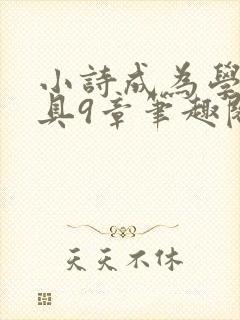 小詩成為學
具9章筆趣
天天不休